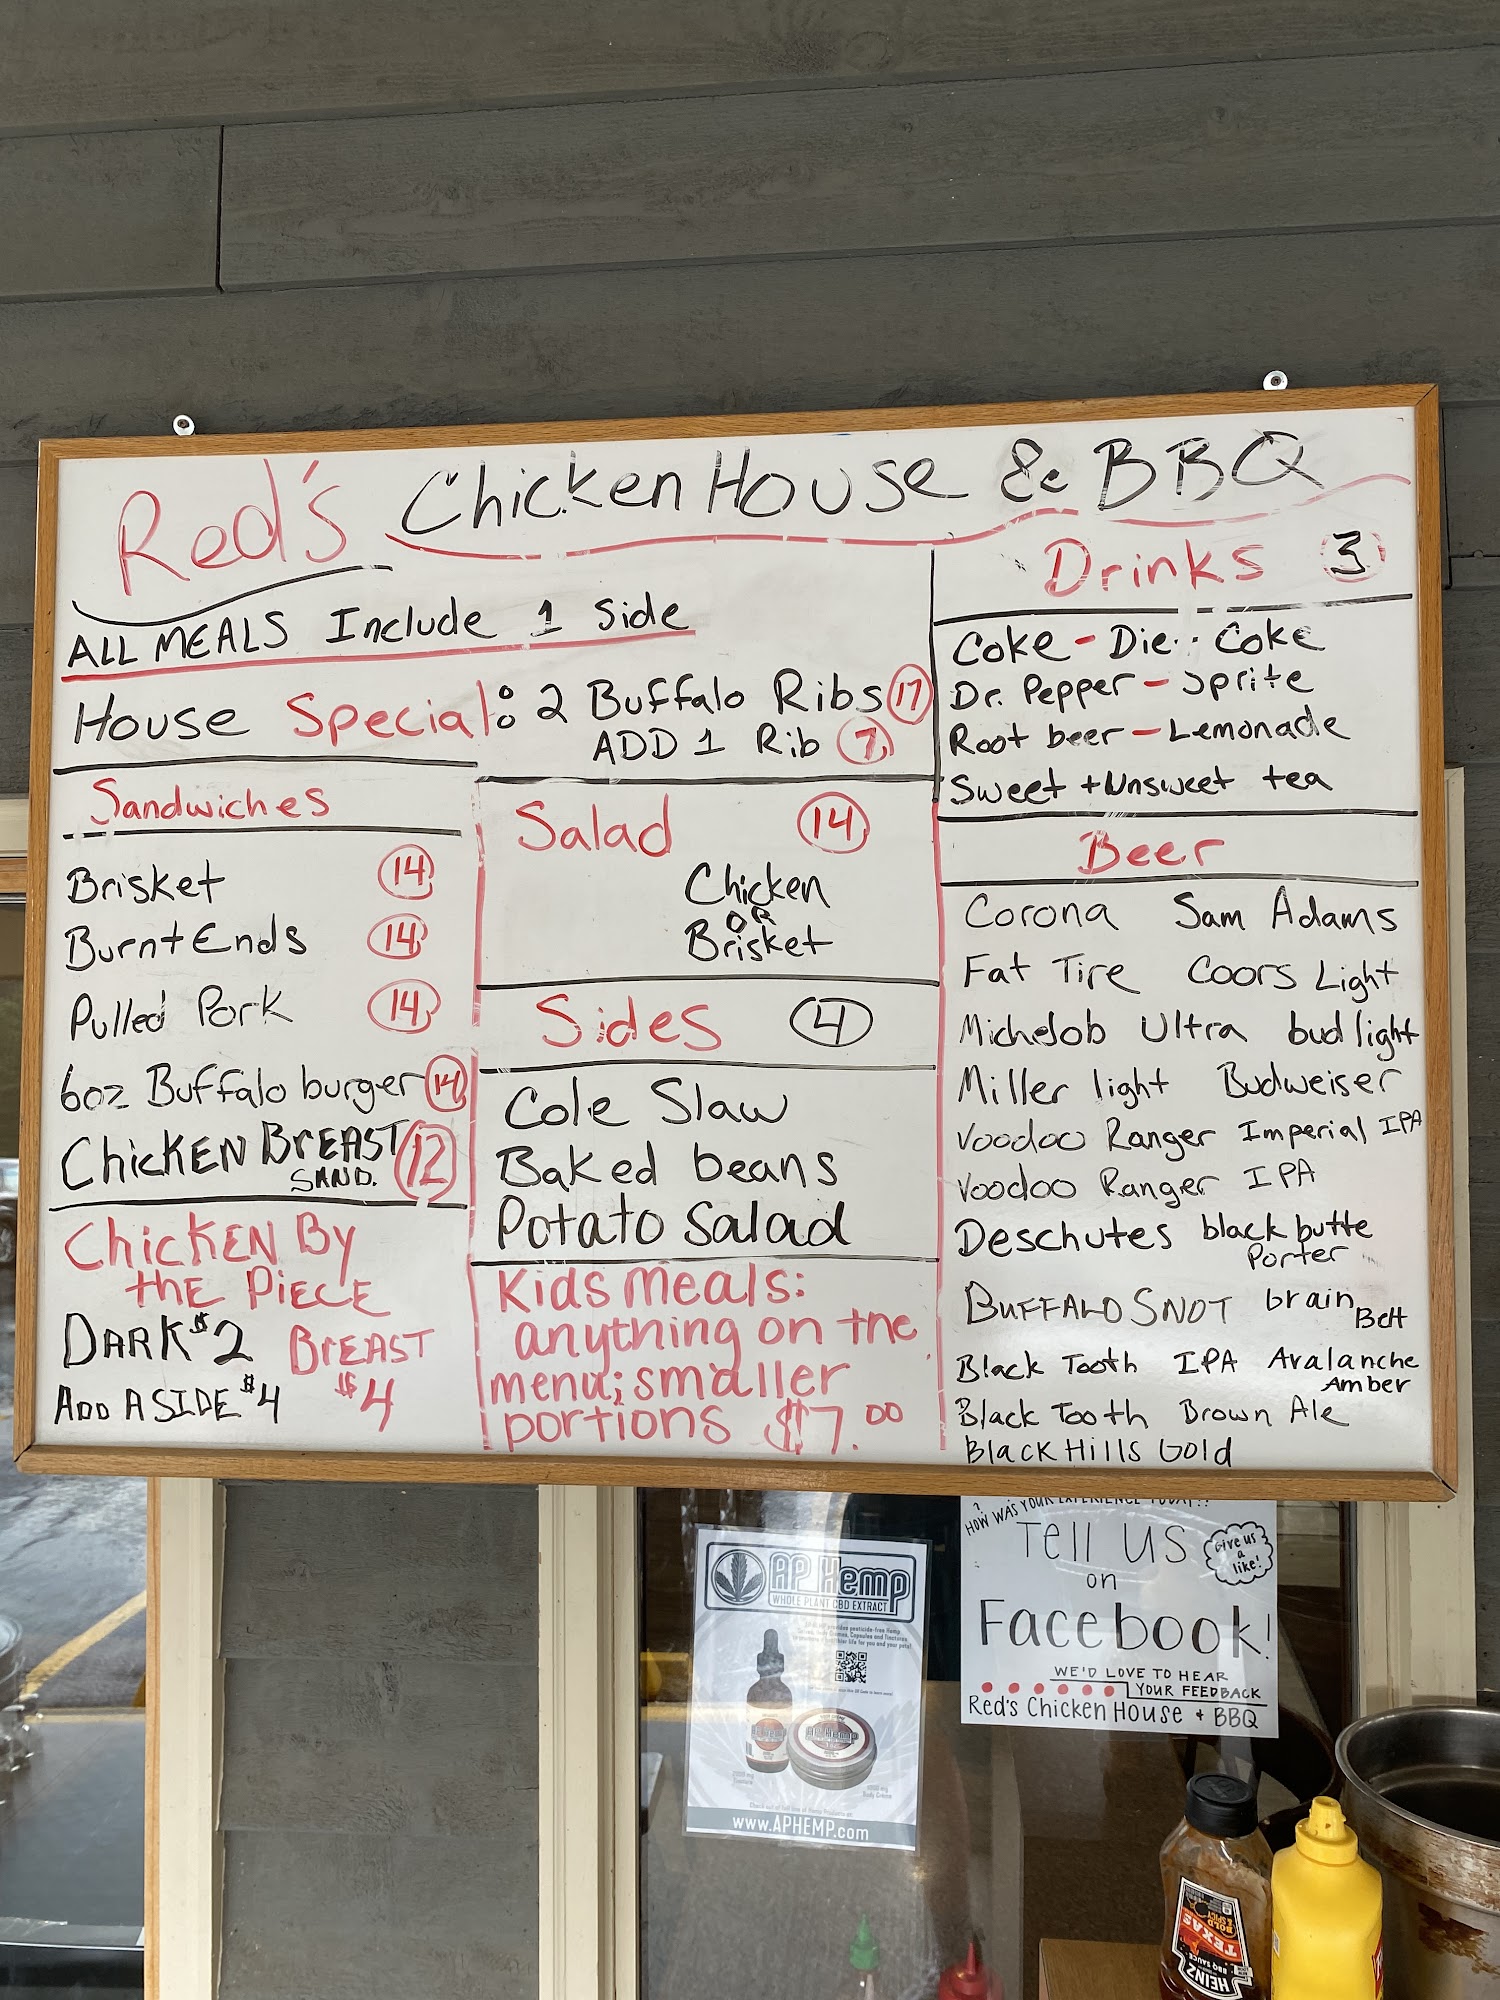 Red's Chicken House & BBQ
ALL MEALS Include 1 side
House Special: 2 Buffalo Ribs 17
ADD 1 Rib 7
Sandwiches
Brisket 14
Burnt Ends 14
Pulled Pork 14
6oz Buffalo burger 14
Chicken Breast 12
SAND.
Chicken By
the Piece
DARK $2
Breast
$4
Add A SIDE $4
Salad 14
Chicken
OR
Brisket
Sides 4
Cole Slaw
Baked beans
Potato Salad
Kids Meals:
anything on the
menu; smaller
portions $7.00
Drinks 3
Coke - Die Coke
Dr. Pepper - Sprite
Root beer - Lemonade
Sweet + Unsweet tea
Beer
Corona Sam Adams
Fat Tire Coors Light
Michelob Ultra bud light
Miller light Budweiser
Voodoo Ranger Imperial IPA
Voodoo Ranger IPA
Deschutes black butte
Porter
BUFFALO SNOT brain
Belt
Black Tooth IPA Avalanche
Amber
Black Tooth Brown Ale
Black Hills Gold
AP Hemp
WHOLE PLANT CBD EXTRACT
www.APHEMP.com
HOW WAS YOUR EXPERIENCE TODAY??
Tell us
on
Facebook!
Give us
a
like!
WE'D LOVE TO HEAR
YOUR FEEDBACK
Red's Chicken House + BBQ
BOLD
& SPICY
TEXAS
BBQ SAUCE
HEINZ